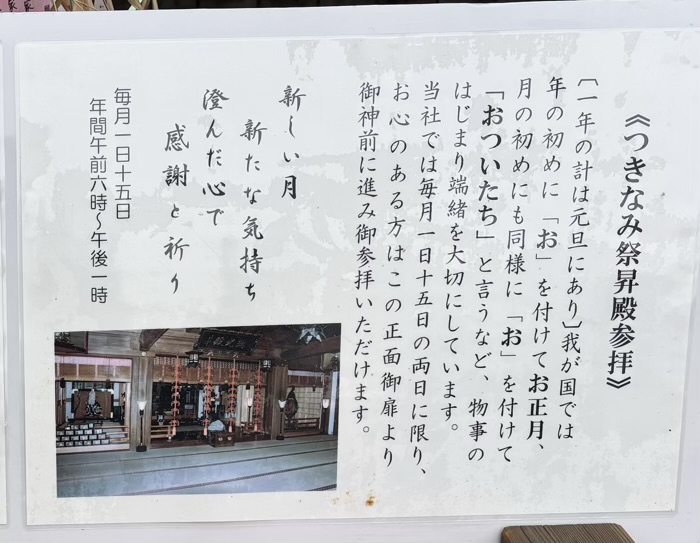 《つきなみ祭昇殿参拝》
〔一年の計は元旦にあり〕我が国では
年の初めに「お」を付けてお正月、
月の初めにも同様に「お」を付けて
「おついたち」と言うなど、物事の
はじまり端緒を大切にしています。
当社では毎月一日十五日の両日に限り、
お心のある方はこの正面御扉より
御神前に進み御参拝いただけます。
新しい月
新たな気持ち
澄んだ心で
感謝と祈り
毎月一日十五日
年間午前六時～午後一時